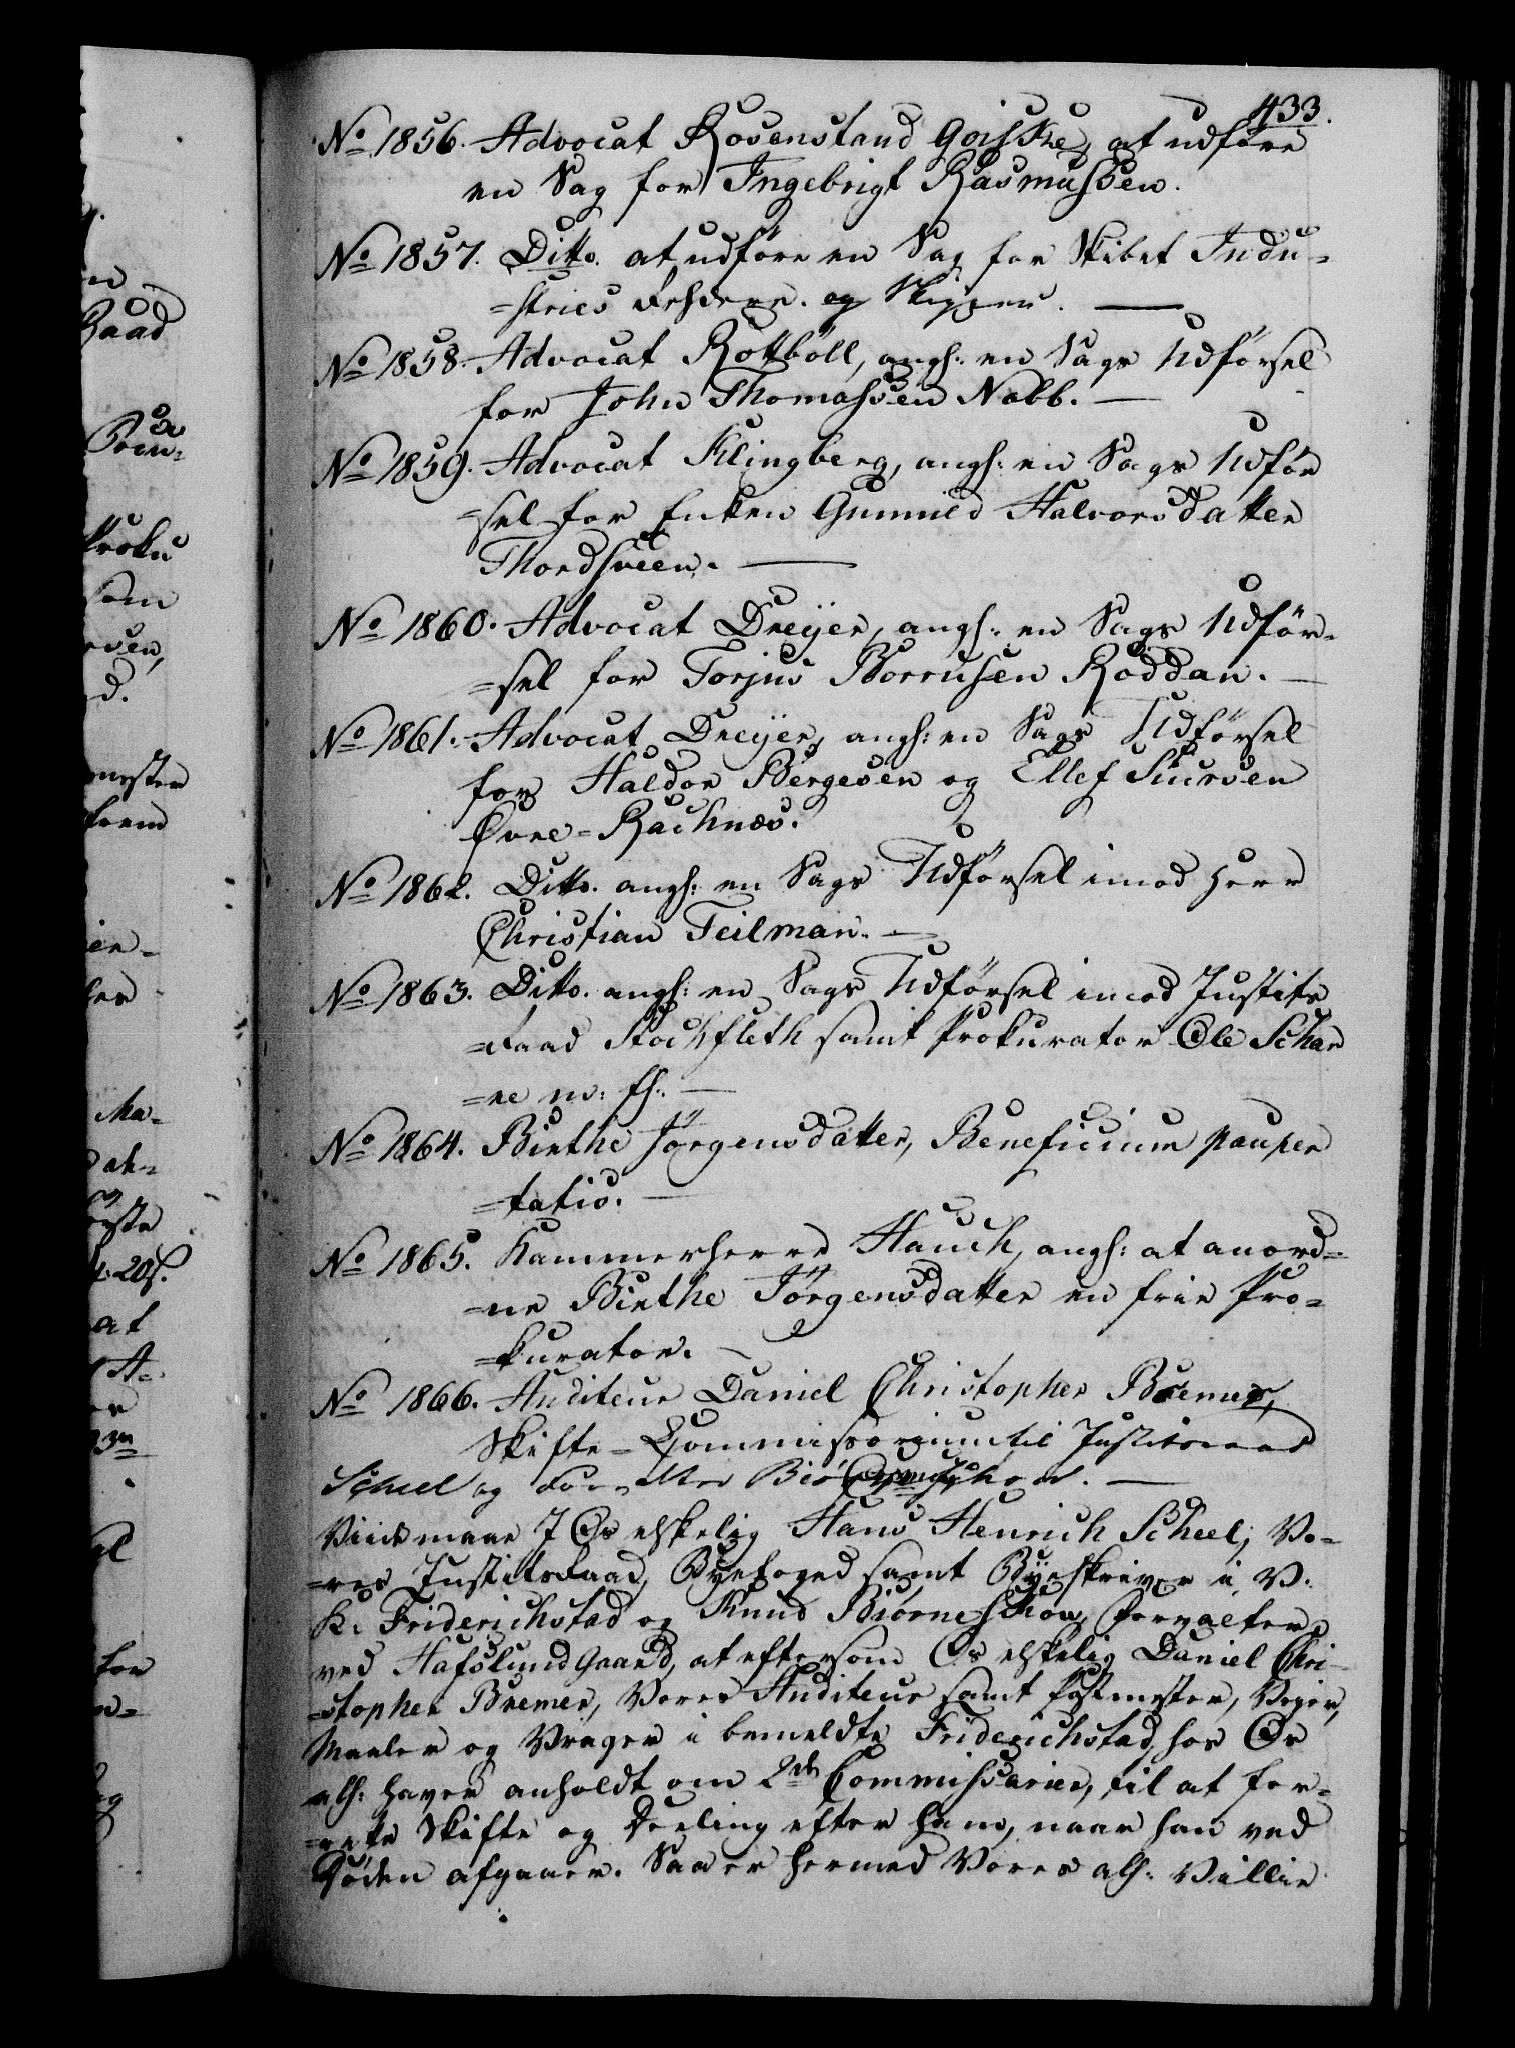 433.
No 1856. Advocat Rosenstand Goiske, at udføre
en Sag for Ingebrigt Rasmussen.
No 1857. Ditto. at udføre en Sag for Skibet Indu-
=stries Rehdere. og Skipper.
No 1858. Advocat Rottböll, angh: en Sags Udförsel
for John Thomassen Nabb.
No 1859. Advocat Klingberg, angh: en Sags Udför
=sel for Enken Gunnild Halvorsdatter
Thordsveen.
No 1860. Advocat Dreyer, angh: en Sags Udför-
=sel for Torjus Borrusen Roddan.
No 1861. Advocat Dreyer, angh: en Sags Udförsel
for Haldor Bergesen og Ellef Siursen
Øvre=Rachnæs.
No 1862. Ditto. angh: en Sags Udförsel imod Herr
Christian Teilman.
No 1863. Ditto. angh: en Sags Udförsel imod Justits
=raad Stockfleth samt Prokurator Ole Schar
=re m: fl:
No 1864. Birthe Jörgensdatter, Beneficium pauper
=tatis.
No 1865. Kammerherre Hauch, angh: at anord-
=ne Birthe Jörgensdatter en frie Pro-
=kurator.
No 1866. Auditeur Daniel Christopher Bremer,
Skifte=Commissorium til Justitsraad
Scheel og Forvalter Biörneschow.
Viide maae I Os elskelig Hans Henrich Scheel, Vo-
=res Justitsraad, Byefoged samt Byeskriver i V.
K. Friderichstad og Knud Biörneschow, Forvalter
ved Hafslund Gaard, at eftersom Os elskelig Daniel Chri-
=stopher Bremer, Vores Auditeur samt Postmester, Vejer,
Maaler og Vrager i bemeldte Friderichstad, hos Os
alh: haver anholdt om 2de Commissarier, til at for-
=rette Skifte og Deeling efter ham, naar han ved
Döden afgaaer. Saa er hermed Vores alh: Villie